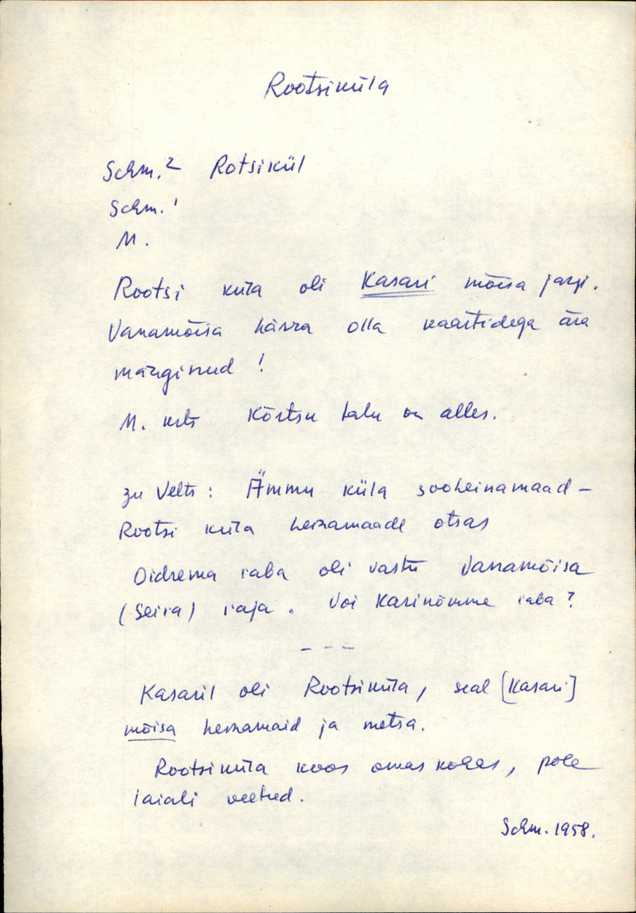 Rootsiküla
Schm.² Rotsikül
Schm.¹
M.
Rootsi küla oli Kasari mõisa järgi.
Vanamõisa härra olla kaartidega ära
mänginud !
M. Kõrtsu talu on alles.
zu Velts : Ämmu küla sooheinamaad –
Rootsi küla heinamaade otsas
Oidrema raba oli vastu Vanamõisa
(Seira) raja. Voi Karinõmme raba ?
- - -
Kasaril oli Rootsiküla, seal [Kasari]
mõisa heinamaid ja metsa.
Rootsiküla koos omas kohas, pole
laiali veetud.
Schm. 1958.